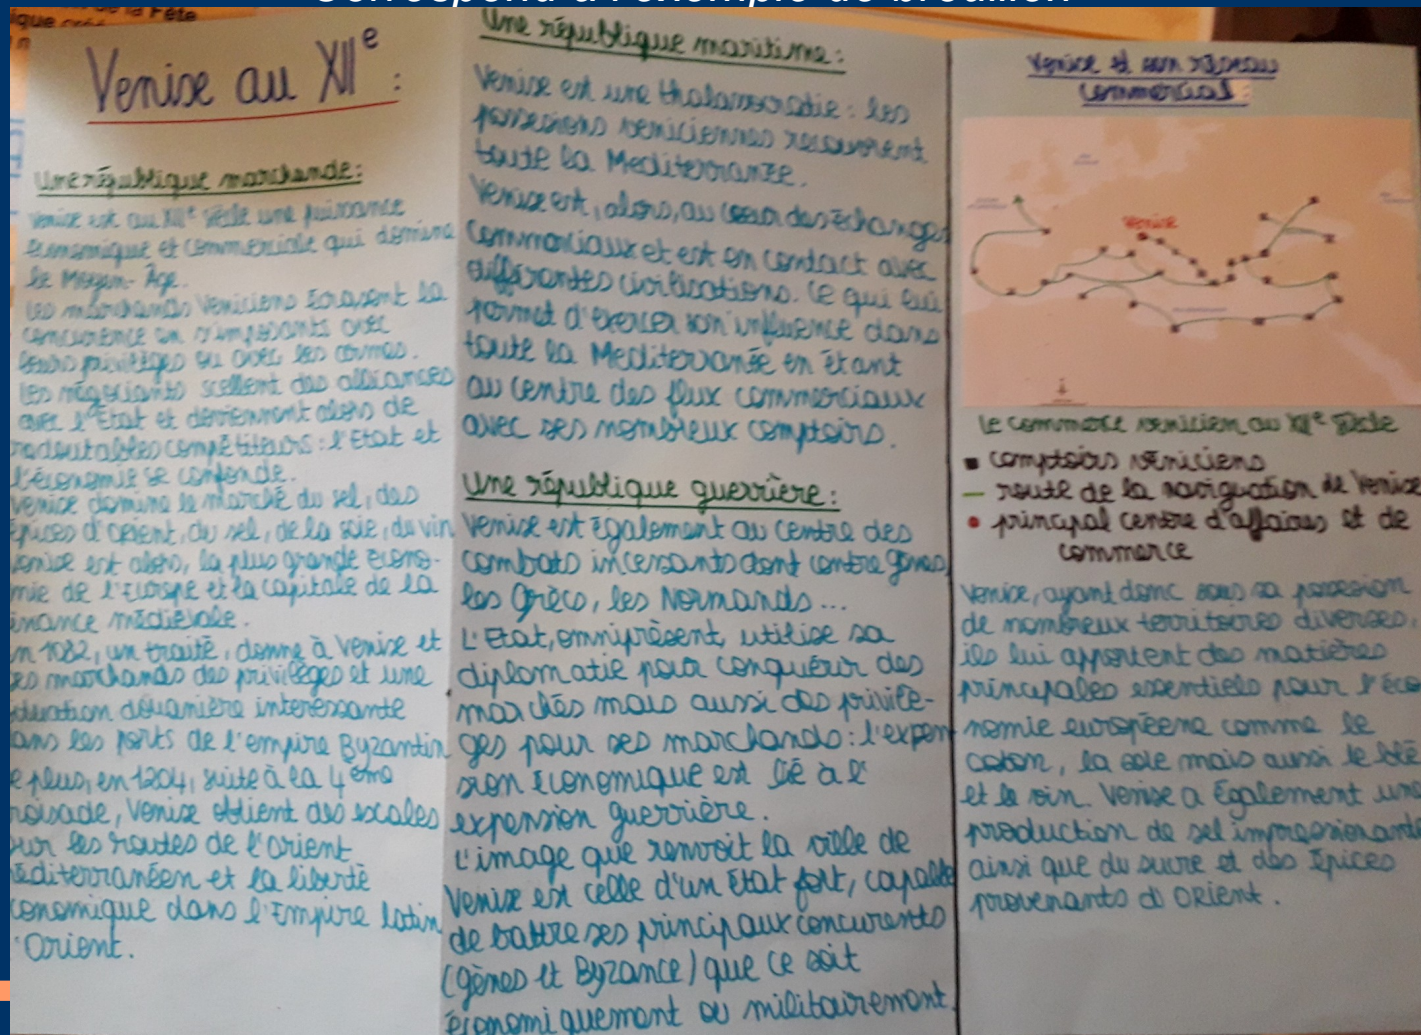 Correspond à l'exemple de brouillon
la Fête
Venise au XIIe :
Une république marchande :
Venise est au XIIe siècle une puissance
économique et commerciale qui domine
le Moyen-Âge.
Les marchands Veniciens écrasent la
concurence en s'imposants avec
leurs privilèges ou avec les armes.
Les négociants scellent des alliances
avec l'Etat et deviennent alors de
redoutables compétiteurs : l'Etat et
l'économie se confonde.
Venice domine le marché du sel, des
épices d'Orient, du sel, de la soie, du vin
Venise est alors, la plus grande écono-
mie de l'Europe et la capitale de la
inance médiévale.
n 1082, un traité, donne à Venise et
es marchands des privilèges et une
duation douanière interessante
ans les ports de l'empire Byzantin
e plus, en 1204, suite à la 4ème
roisade, Venise obtient des escales
sur les routes de l'orient
éditerranéen et la liberté
conomique dans l'Empire latin
'Orient.
Une république maritime :
Venise est une thalassocratie : les
possesions veniciennes recouvrent
toute la Mediterranée.
Venise est, alors, au coeur des échanges
commerciaux et est en contact avec
différentes civilisations. Ce qui lui
permet d'exercer son influence dans
toute la Mediterranée en étant
au centre des flux commerciaux
avec ses nombreux comptoirs.
Une république guerrière :
Venise est également au centre des
combats incessants dont contre gênes,
les Grècs, les Normands...
L'Etat, omniprèsent, utilise sa
diplomatie pour conquérir des
marchés mais aussi des privilè-
ges pour ses marchands : l'expen
sion économique est lié à l'
expension guerrière.
L'image que renvoit la ville de
Venise est celle d'un état fort, capable
de battre ses principaux concurents
(gènes et Byzance) que ce soit
économiquement ou militairement.
Venice et son réseau
commercial :
Venise
Le commerce venicien au XIIe siècle
comptoirs véniciens
route de la naviguation de Venise
principal centre d'affaires et de
commerce
Venise, ayant donc sous sa possesion
de nombreux territoires diverses,
ils lui apportent des matières
principales essentiels pour l'éco
nomie européene comme le
coton, la soie mais aussi le blé
et le vin. Venise a également une
production de sel impressionante
ainsi que du sucre et des épices
provenants d'Orient.